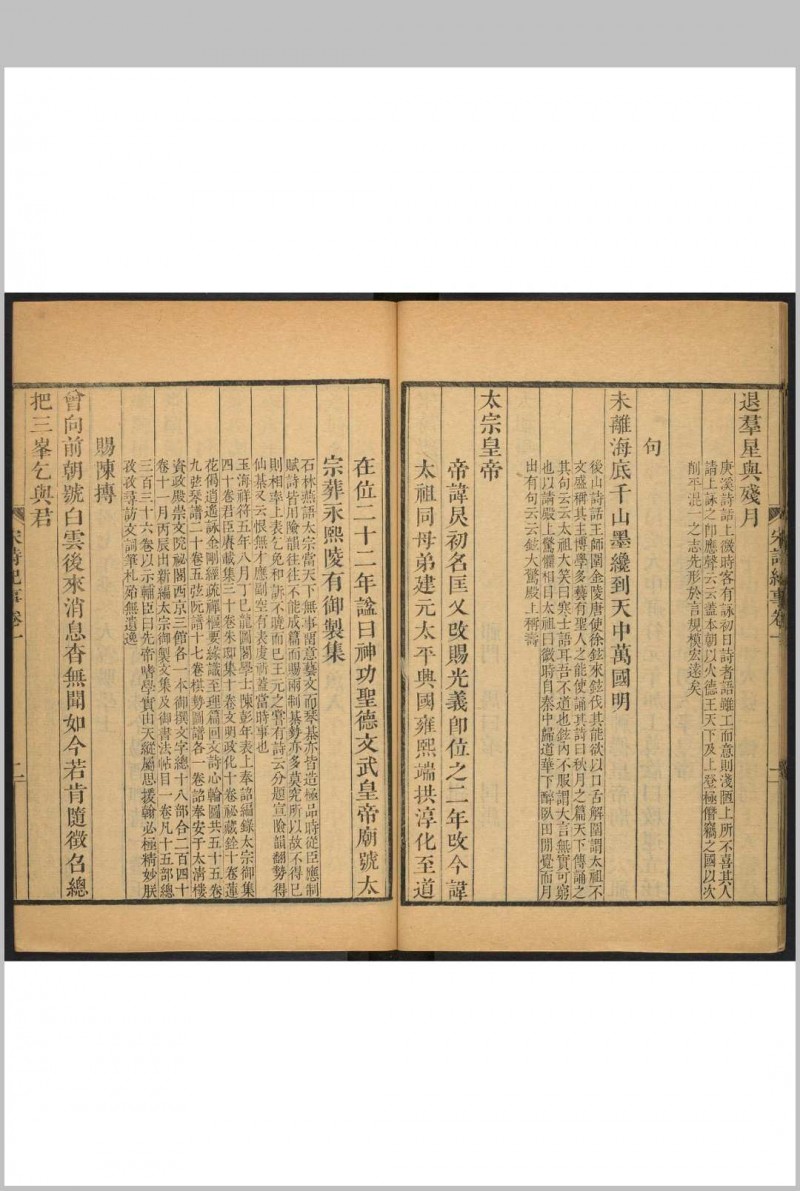 退羣星與殘月
庚溪詩話上微時客有詠初日詩者語雖工而意則淺陋上所不喜其人
請上詠之卽應聲云云蓋本朝以火德王天下及上登極僭竊之國以次
削平混一之志先形於言規模宏遠矣
句
未離海底千山墨纔到天中萬國明
後山詩話王師圍金陵唐使徐鉉來鉉伐其能欲以口舌解圍謂太祖不
文盛稱其主博學多藝有聖人之能使誦其詩曰秋月之篇天下傳誦之
其句云云太祖大笑曰寒士語耳吾不道也鉉內不服謂大言無實可窮
也以請殿上驚懼相目太祖曰微時自秦中歸道華下醉臥田閒覺而月
出有句云云鉉大驚殿上稱壽
太宗皇帝
帝諱炅初名匡乂改賜光義卽位之二年改今諱
太祖同母弟建元太平興國雍熙端拱淳化至道
宋詩紀事卷一
二
在位二十二年諡曰神功聖德文武皇帝廟號太
宗葬永熙陵有御製集
石林燕語太宗當天下無事留意藝文而琴棊亦皆造極品時從臣應制
賦詩皆用險韻往往不能成篇而賜兩制棊勢亦多莫究所以故不得已
則相率上表乞免和訴不曉而已王元之嘗有詩云分題宣險韻翻勢得
仙棊又云恨無才應副空有表虔祈蓋當時事也
玉海祥符五年八月丁巳龍圖閣學士陳彭年表上奉詔編錄太宗御集
四十卷君臣賡載集三十卷朱邸集十卷文明政化十卷祕藏銓十卷蓮
花偈逍遙詠金剛經疏禪樞要緣識至理篇回文詩心輪圖共五十五卷
九弦琴譜二十卷五弦阮譜十七卷棋勢圖譜各一卷詔奉安于太淸樓
資政殿崇文院祕閣西京三館各一本御撰文字總十八部合二百四十
卷十一月丙辰出新編太宗御製文集及御書法帖目一卷凡十五部總
三百三十六卷以示輔臣曰先帝嗜學實由天縱屬思援翰必極精妙朕
孜孜尋訪文詞筆札殆無遺逸
賜陳摶
曾向前朝號白雲後來消息杳無聞如今若肯隨徵召總
把三峯乞與君
宋詩紀事卷一
二